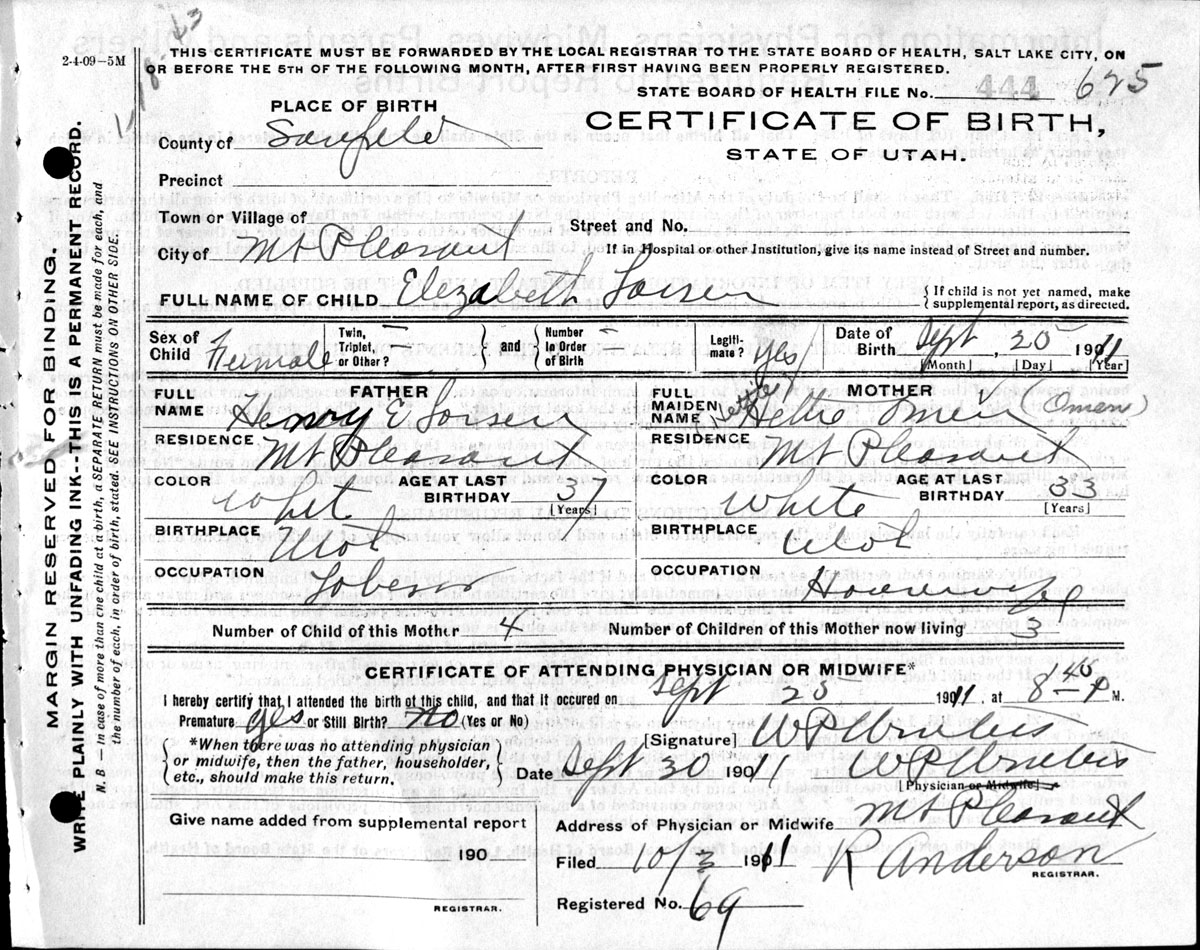 2-4-09-5M
THIS CERTIFICATE MUST BE FORWARDED BY THE LOCAL REGISTRAR TO THE STATE BOARD OF HEALTH, SALT LAKE CITY, ON
OR BEFORE THE 5TH OF THE FOLLOWING MONTH, AFTER FIRST HAVING BEEN PROPERLY REGISTERED.
STATE BOARD OF HEALTH FILE No. 444 625
PLACE OF BIRTH
CERTIFICATE OF BIRTH,
STATE OF UTAH.
County of
Precinct
Town or Village of
Street and No.
City of Mt Pleasant
If in Hospital or other Institution, give its name instead of Street and number.
FULL NAME OF CHILD Elezabeth Larsen
{ If child is not yet named, make supplemental report, as directed.
Sex of Child Female
Twin, Triplet, or Other? —
and
Number in Order of Birth —
Legitimate? Yes
Date of Birth Sept, 1911
[Month] [Day] [Year]
FATHER
FULL NAME Henry E Larsen
RESIDENCE Mt Pleasant
COLOR Whit
AGE AT LAST BIRTHDAY 37 [Years]
BIRTHPLACE Utah
OCCUPATION
MOTHER
FULL MAIDEN NAME Hettie
RESIDENCE Mt Pleasant
COLOR White
AGE AT LAST BIRTHDAY 33 [Years]
BIRTHPLACE Utah
OCCUPATION Housewife
Number of Child of this Mother 4
Number of Children of this Mother now living 3
CERTIFICATE OF ATTENDING PHYSICIAN OR MIDWIFE*
I hereby certify that I attended the birth of this child, and that it occured on Sept 1911, at 8 P M.
Premature yes or Still Birth? no (Yes or No)
*When there was no attending physician
or midwife, then the father, householder,
etc., should make this return.
[Signature] W P
Date Sept 30 1911 W P
[Physician or Midwife]
Address of Physician or Midwife Mt Pleasant
Give name added from supplemental report
190
REGISTRAR.
Filed 10/3 1911 R Anderson
REGISTRAR.
Registered No. 69
MARGIN RESERVED FOR BINDING.
WRITE PLAINLY WITH UNFADING INK--THIS IS A PERMANENT RECORD.
N. B.—In case of more than one child at a birth, a SEPARATE RETURN must be made for each, and
the number of each, in order of birth, stated. SEE INSTRUCTIONS ON OTHER SIDE.